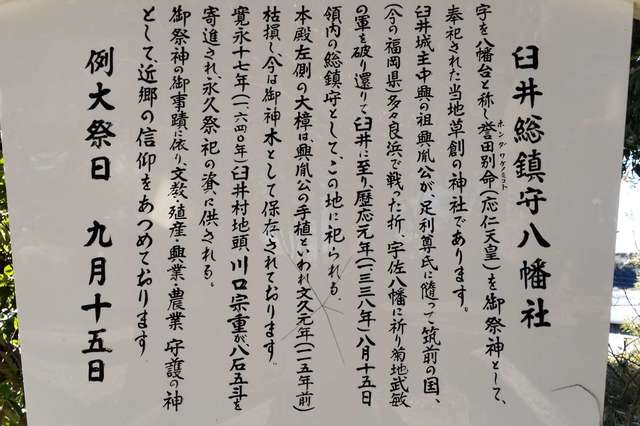 臼井総鎮守八幡社
字を八幡台と称し誉田別命(応仁天皇)を御祭神として、
ホンダワケノミコト
奉祀された当地草創の神社であります。
臼井城主中興の祖、興胤公が、足利尊氏に随って筑前の国、
(今の福岡県)多々良浜で戦った折、宇佐八幡に祈り菊地武敏
の軍を破り還りて臼井に至り、歴応元年(一三三八年)八月十五日
領内の総鎮守として、この地に祀られる。
本殿左側の大樟は、興胤公の手植といわれ文久元年(一一五年前)
枯損し、今は御神木として保存されております。
寛永十七年(一、六四〇年)臼井村地頭、川口宗重が八石五斗を
寄進され、永久祭祀の資に供される。
御祭神の御事蹟に依り、文教・殖産・興業・農業 守護の神
として、近郷の信仰をあつめております。
例大祭日 九月十五日